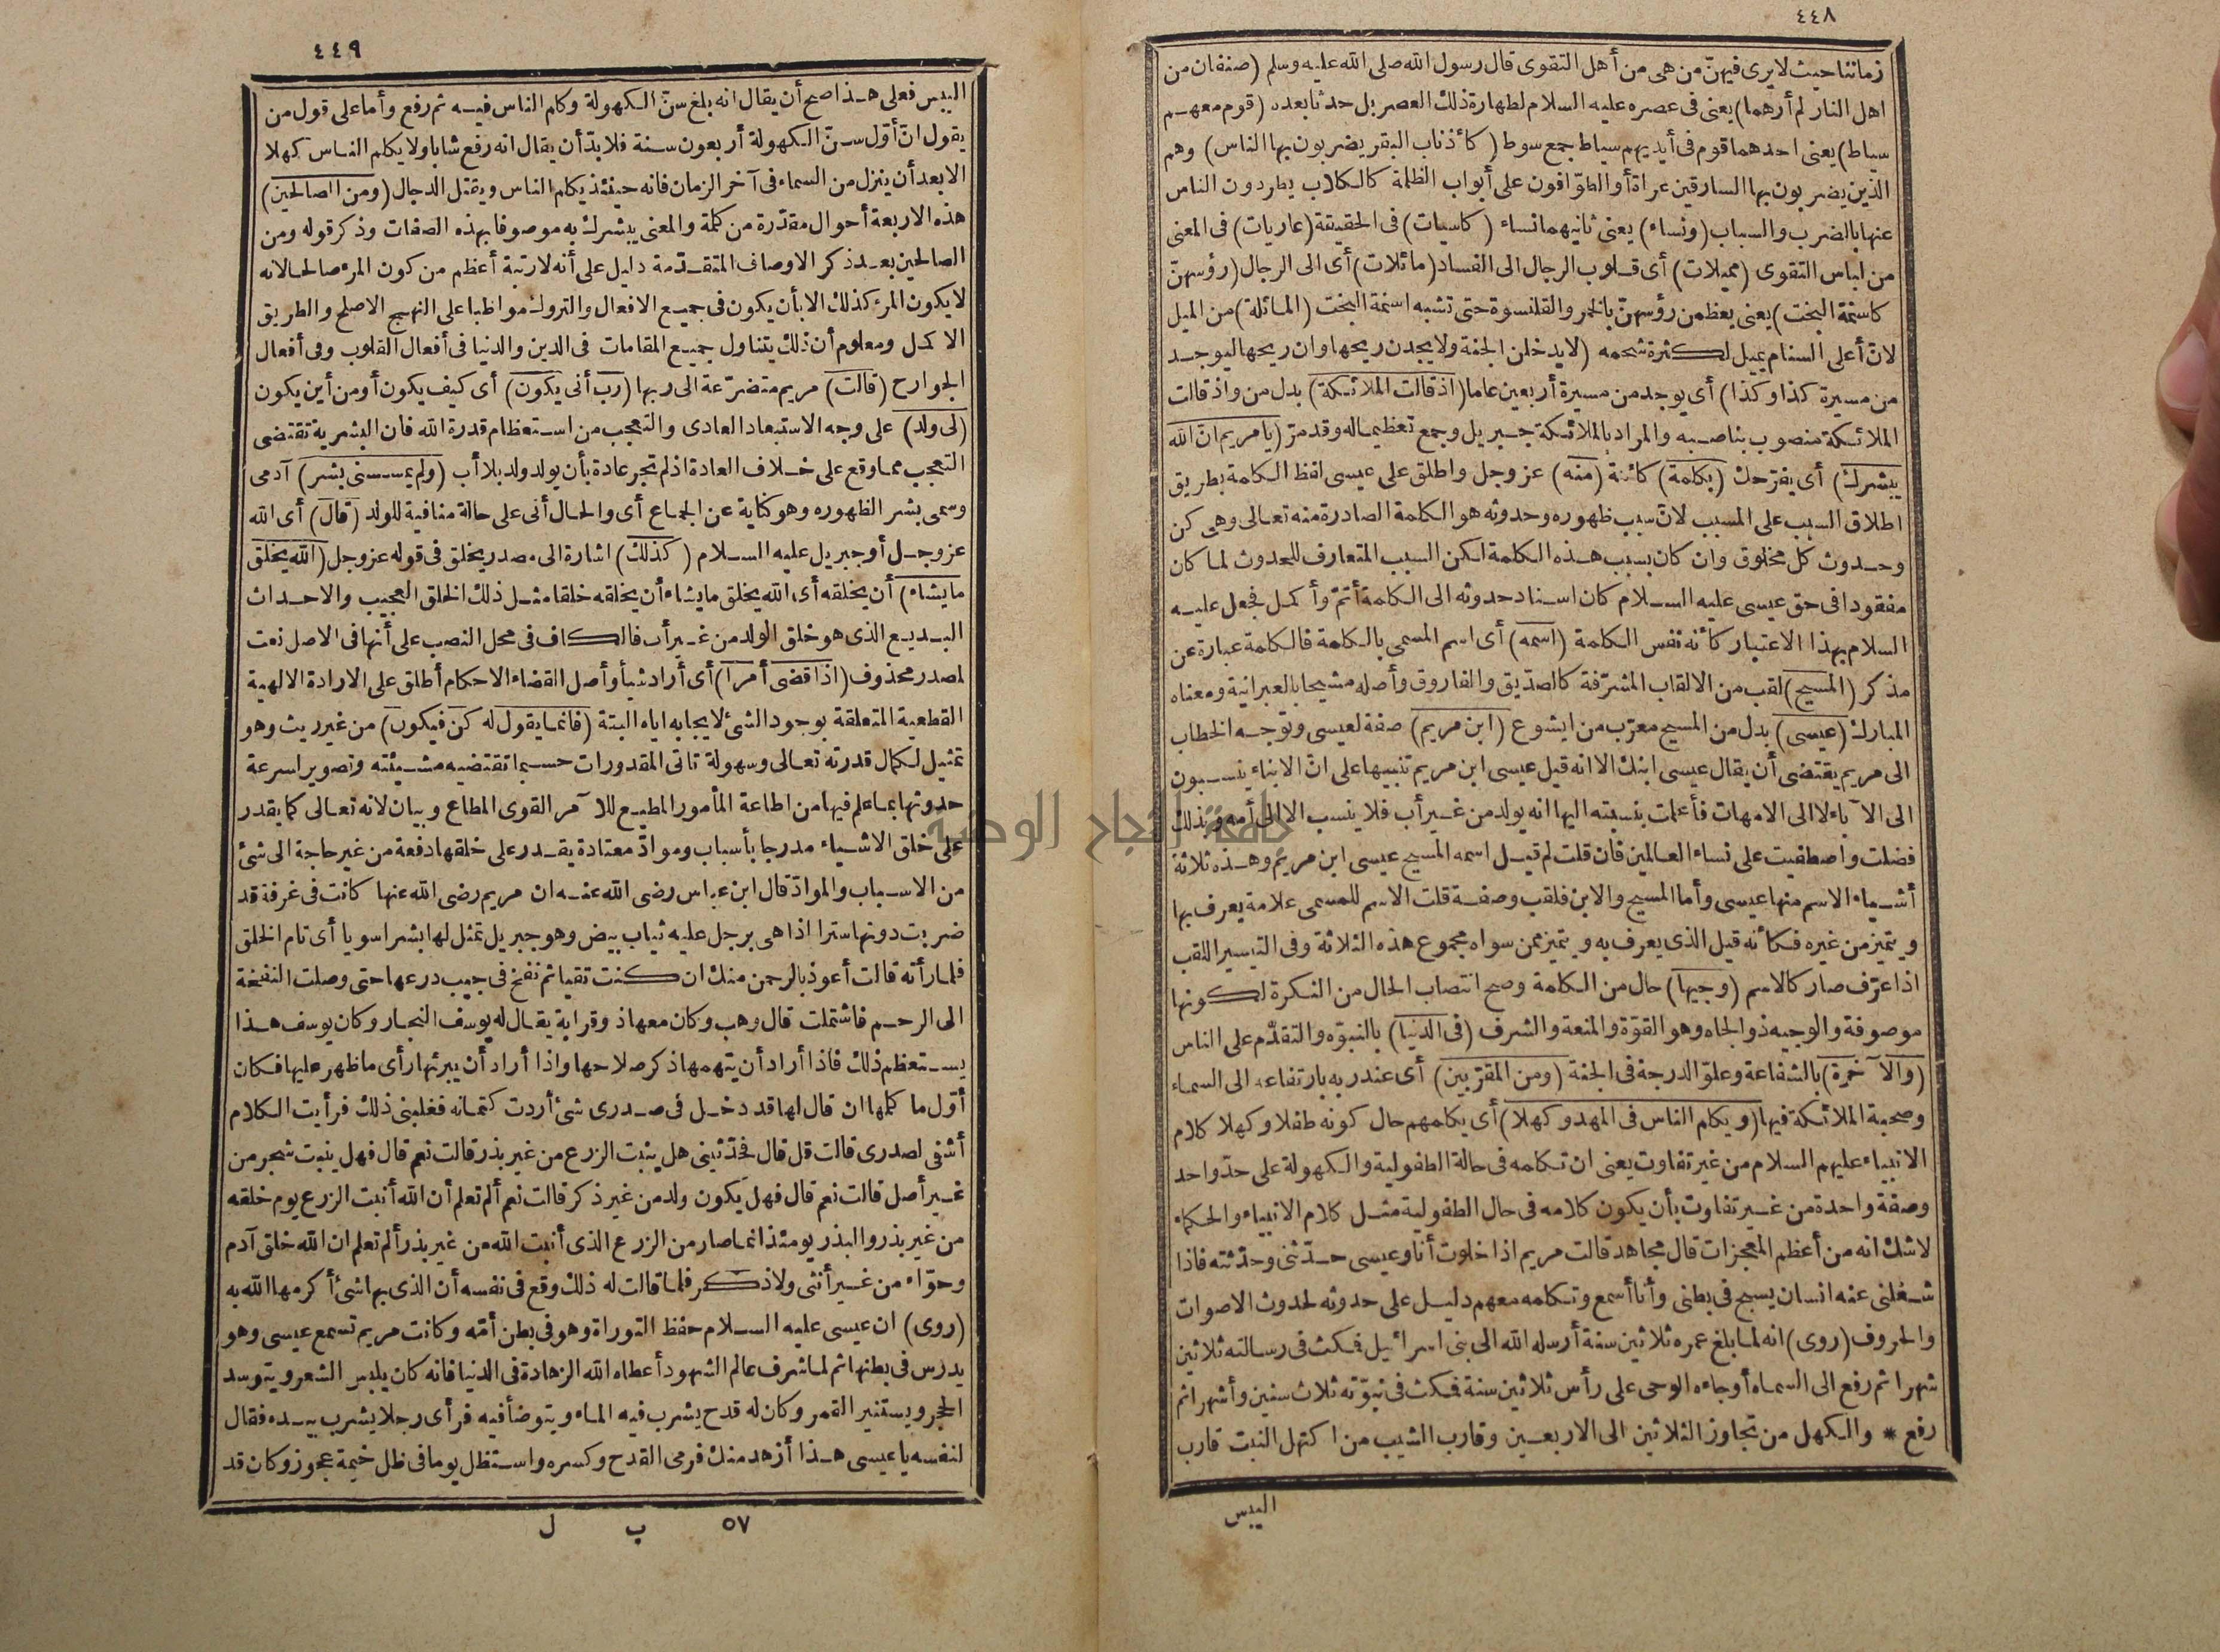 ٤٤٨
زماننا حيث لا يرى فيهنّ من هى من أهل التقوى قال رسول الله صلى الله عليه وسلم (صنفان من
اهل النار لم أرهما) يعنى فى عصره عليه السلام لطهارة ذلك العصر بل حدثا بعده (قوم معهم
سياط) يعنى احدهما قوم فى أيديهم سياط جمع سوط (كأذناب البقر يضربون بها الناس) وهم
الذين يضربون بها السارقين عراة أو الطوّافون على أبواب الظلمة كالكلاب يطردون الناس
عنها بالضرب والسباب (ونساء) يعنى ثانيهما نساء (كاسيات) فى الحقيقة (عاريات) فى المعنى
من لباس التقوى (مميلات) أى قلوب الرجال الى الفساد (مائلات) أى الى الرجال (رؤسهنّ
كاسنمة البخت) يعنى يعظمن رؤسهنّ بالخمر والقلنسوة حتى تشبه اسنمة البخت (المائلة) من الميل
لانّ أعلى السنام يميل لكثرة شحمه (لا يدخلن الجنة ولا يجدن ريحها وان ريحها ليوجد
من مسيرة كذا وكذا) أى يوجد من مسيرة أربعين عاما (اذ قالت الملائكة) بدل من واذ قالت
الملائكة منصوب بناصبه والمراد بالملائكة جبريل وجمع تعظيما له وقد مرّ (يا مريم انّ الله
يبشرك) أى يفرّحك (بكلمة) كائنة (منه) عز وجل واطلق على عيسى لفظ الكلمة بطريق
اطلاق السبب على المسبب لانّ سبب ظهوره وحدوثه هو الكلمة الصادرة منه تعالى وهى كن
وحدوث كل مخلوق وان كان بسبب هذه الكلمة لكن السبب المتعارف للحدوث لما كان
مفقودا فى حق عيسى عليه السلام كان اسناد حدوثه الى الكلمة أتمّ وأكمل فجعل عليه
السلام بهذا الاعتبار كأنه نفس الكلمة (اسمه) أى اسم المسمى بالكلمة فالكلمة عبارة عن
مذكر (المسيح) لقب من الالقاب المشرّفة كالصدّيق والفاروق وأصله مشيحا بالعبرانية ومعناه
المبارك (عيسى) بدل من المسيح معرّب من ايشوع (ابن مريم) صفة لعيسى وتوجه الخطاب
الى مريم يقتضى أن يقال عيسى ابنك الا انه قيل عيسى ابن مريم تنبيها على انّ الابناء ينسبون
الى الآباء لا الى الامهات فأعلمت بنسبته اليها انه يولد من غير أب فلا ينسب الا الى أمه وبذلك
فضلت واصطفيت على نساء العالمين فان قلت لم قيل اسمه المسيح عيسى ابن مريم وهذه ثلاثة
أشياء الاسم منها عيسى وأما المسيح والابن فلقب وصفة قلت الاسم للمسمى علامة يعرف بها
ويتميز من غيره فكأنه قيل الذى يعرف به ويتميز ممن سواه مجموع هذه الثلاثة وفى التيسير اللقب
اذا عرّف صار كالاسم (وجيها) حال من الكلمة وصح انتصاب الحال من النكرة لكونها
موصوفة والوجيه ذو الجاه وهو القوّة والمنعة والشرف (فى الدنيا) بالنبوّه والتقدّم على الناس
(والآخرة) بالشفاعة وعلوّ الدرجة فى الجنة (ومن المقرّبين) أى عند ربه بارتفاعه الى السماء
وصحبة الملائكة فيها (ويكلم الناس فى المهد وكهلا) أى يكلمهم حال كونه طفلا وكهلا كلام
الانبياء عليهم السلام من غير تفاوت يعنى ان تكلمه فى حالة الطفولية والكهولة على حدّ واحد
وصفة واحدة من غير تفاوت بأن يكون كلامه فى حال الطفولية مثل كلام الانبياء والحكماء
لاشك انه من أعظم المعجزات قال مجاهد قالت مريم اذا خلوت أنا وعيسى حدّثنى وحدّثته فاذا
شغلنى عنه انسان يسبح فى بطنى وأنا أسمع وتكلمه معهم دليل على حدوثه لحدوث الاصوات
والحروف (روى) انه لما بلغ عمره ثلاثين سنة أرسله الله الى بنى اسرائيل فمكث فى رسالته ثلاثين
شهرا ثم رفع الى السماء أو جاءه الوحى على رأس ثلاثين سنة فمكث فى نبوّته ثلاث سنين وأشهرا ثم
رفع * والكهل من تجاوز الثلاثين الى الاربعين وقارب الشيب من اكتهل النبت قارب
اليبس
٤٤٩
اليبس فعلى هذا صح أن يقال انه بلغ سنّ الكهولة وكلم الناس فيه ثم رفع وأما على قول من
يقول انّ أوّل سنّ الكهولة أربعون سنة فلا بدّ أن يقال انه رفع شابا ولا يكلم الناس كهلا
الا بعد أن ينزل من السماء فى آخر الزمان فانه حينئذ يكلم الناس ويقتل الدجال (ومن الصالحين)
هذه الاربعة أحوال مقدّرة من كلمة والمعنى يبشرك به موصوفا بهذه الصفات وذكر قوله ومن
الصالحين بعد ذكر الاوصاف المتقدّمة دليل على أنه لا رتبة أعظم من كون المرء صالحا لانه
لا يكون المرء كذلك الا بأن يكون فى جميع الافعال والتروك مواظبا على النهج الاصلح والطريق
الاكمل ومعلوم أن ذلك يتناول جميع المقامات فى الدين والدنيا فى أفعال القلوب وفى أفعال
الجوارح (قالت) مريم متضرّعة الى ربها (رب أنى يكون) أى كيف يكون أو من أين يكون
(لى ولد) على وجه الاستبعاد العادى والتعجب من استعظام قدرة الله فان البشرية تقتضى
التعجب مما وقع على خلاف العادة اذ لم تجر عادة بأن يولد ولد بلا أب (ولم يمسسنى بشر) آدمى
وسمى بشرا لظهوره وهو كناية عن الجماع أى والحال أنى على حالة منافية للولد (قال) أى الله
عز وجل أو جبريل عليه السلام (كذلك) اشارة الى مصدر يخلق فى قوله عز وجل (الله يخلق
ما يشاء) أن يخلقه أى الله يخلق ما يشاء أن يخلقه خلقا مثل ذلك الخلق العجيب والاحداث
البديع الذى هو خلق الولد من غير أب فالكاف فى محل النصب على أنها فى الاصل نعت
لمصدر محذوف (اذا قضى أمرا) أى أراد شيأ وأصل القضاء الاحكام أطلق على الارادة الالهية
القطعية المتعلقة بوجود الشئ لايجابه اياه البتة (فانما يقول له كن فيكون) من غير ريث وهو
تمثيل لكمال قدرته تعالى وسهولة تاتى المقدورات حسبما تقتضيه مشيئته وتصوير لسرعة
حدوثها بما علم فيها من اطاعة المأمور المطيع للآمر القوى المطاع وبيان لانه تعالى كما يقدر
على خلق الاشياء مدرجا بأسباب وموادّ معتادة يقدر على خلقها دفعة من غير حاجة الى شئ
من الاسباب والموادّ قال ابن عباس رضى الله عنه ان مريم رضى الله عنها كانت فى غرفة قد
ضربت دونها سترا اذا هى برجل عليه ثياب بيض وهو جبريل تمثل لها بشرا سويا أى تام الخلق
فلما رأته قالت أعوذ بالرحمن منك ان كنت تقيا ثم نفخ فى جيب درعها حتى وصلت النفخة
الى الرحم فاشتملت قال وهب وكان معها ذو قرابة يقال له يوسف النجار وكان يوسف هذا
يستعظم ذلك فاذا أراد أن يتهمها ذكر صلاحها واذا أراد أن يبرئها رأى ما ظهر عليها فكان
أوّل ما كلمها ان قال لها قد دخل فى صدرى شئ أردت كتمانه فغلبنى ذلك فرأيت الكلام
أشفى لصدرى قالت قل قال فحدّثينى هل ينبت الزرع من غير بذر قالت نعم قال فهل ينبت شجر من
غير أصل قالت نعم قال فهل يكون ولد من غير ذكر قالت نعم ألم تعلم أن الله أنبت الزرع يوم خلقه
من غير بذر والبذر يومئذ انما صار من الزرع الذى أنبت الله من غير بذر ألم تعلم ان الله خلق آدم
وحوّاء من غير أنثى ولا ذكر فلما قالت له ذلك وقع فى نفسه أن الذى بها شئ أكرمها الله به
(روى) ان عيسى عليه السلام حفظ التوراة وهو فى بطن أمّه وكانت مريم تسمع عيسى وهو
يدرس فى بطنها ثم لما شرف عالم الشهود أعطاه الله الزهادة فى الدنيا فانه كان يلبس الشعر ويتوسد
الحجر ويستنير القمر وكان له قدح يشرب فيه الماء ويتوضأ فيه فرأى رجلا يشرب بيده فقال
لنفسه يا عيسى هذا أزهد منك فرمى القدح وكسره واستظل يوما فى ظل خيمة عجوز وكان قد
٥٧ ب ل
جامعة النجاح الوطنية